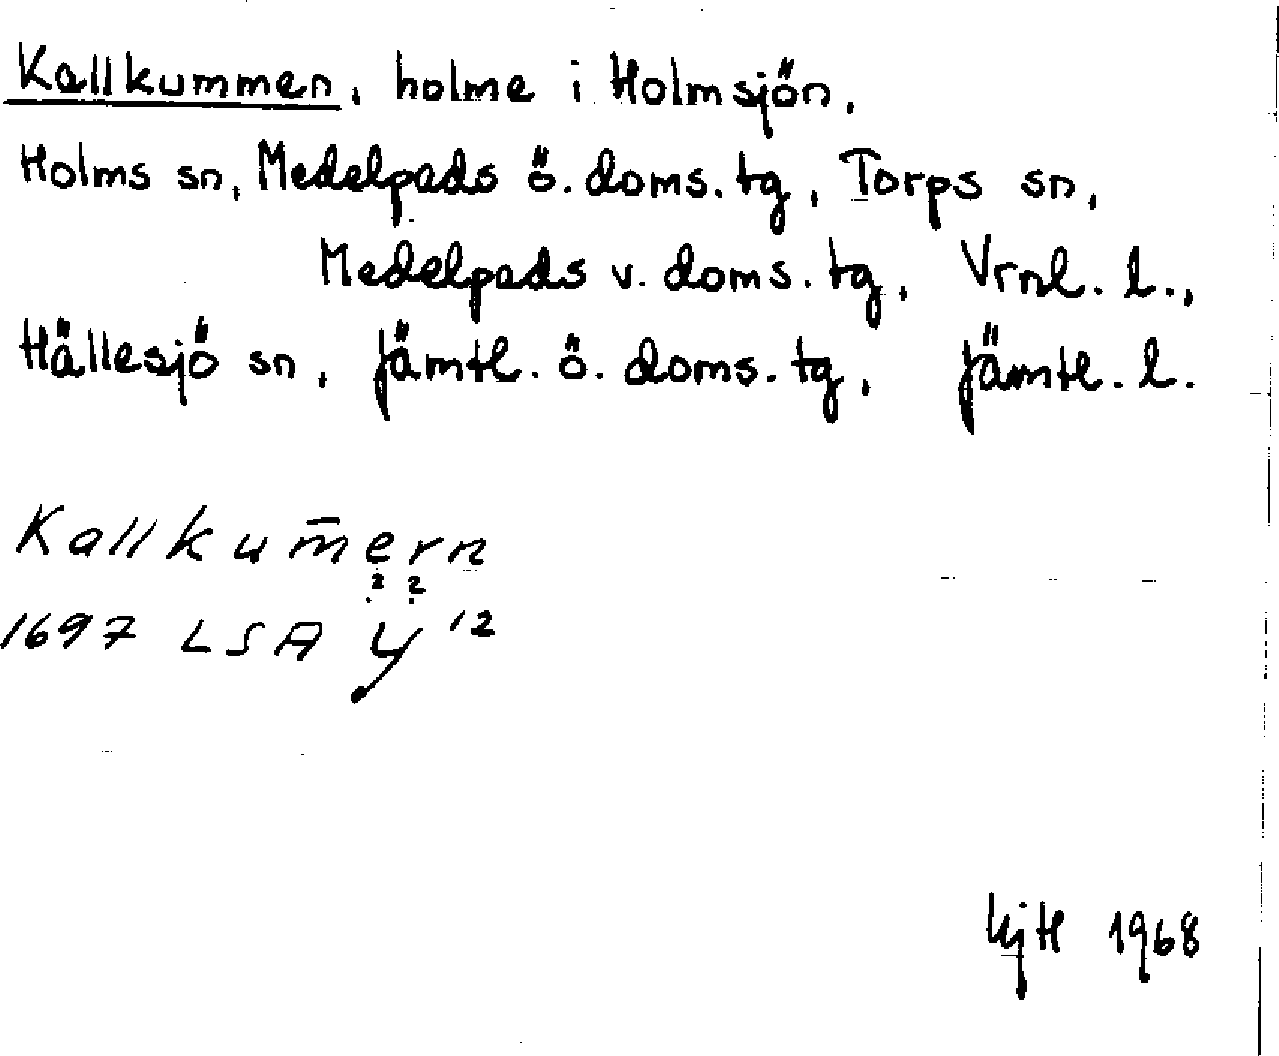 Kallkummen, holme i Holmsjön,
Holms sn, Medelpads ö. doms. tg, Torps sn,
Medelpads v. doms. tg, Vrnl. l.,
Hällesjö sn, Jämtl. ö. doms. tg, Jämtl. l.
Kallkum̄ern
? ?
1697 LSA Y 12
1968